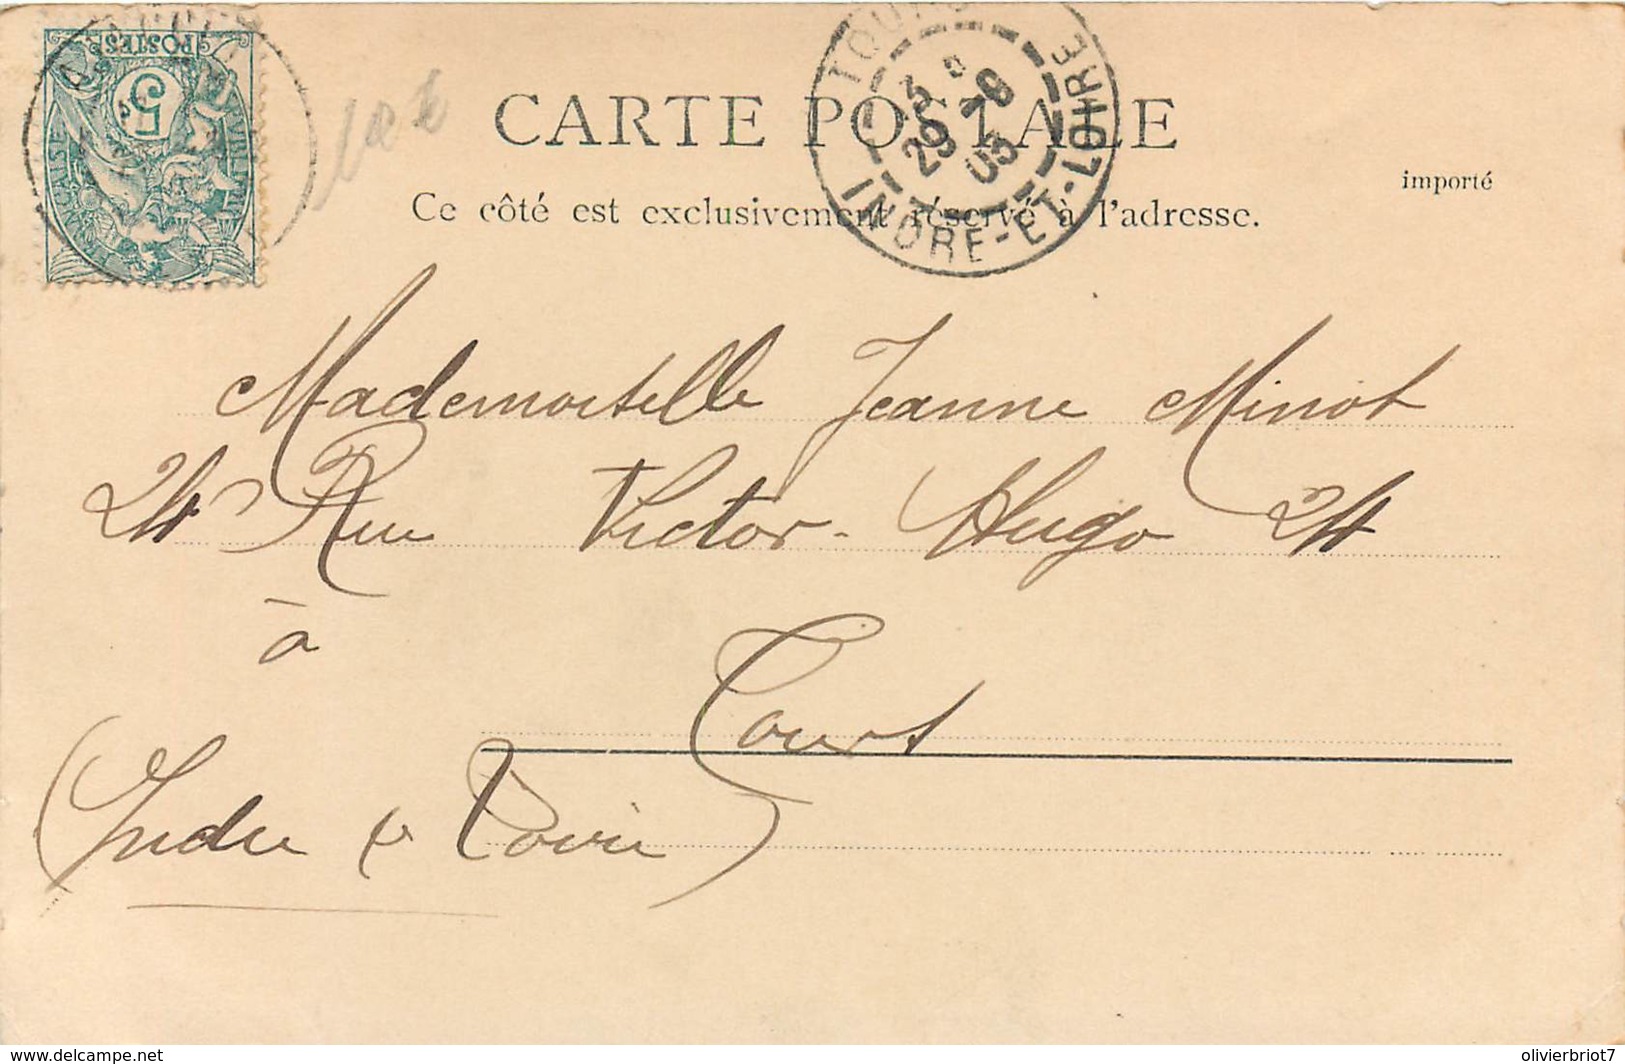 POSTES
5
10 €
CARTE POSTALE
TOURS
3
29 -9
05
INDRE-ET-LOIRE
importé
Ce côté est exclusivement réservé à l'adresse.
Mademoiselle Jeanne Minot
24 Rue Victor-Hugo 24
à
Tours
(Indre & Loire)
www.delcampe.net
olivierbriot7